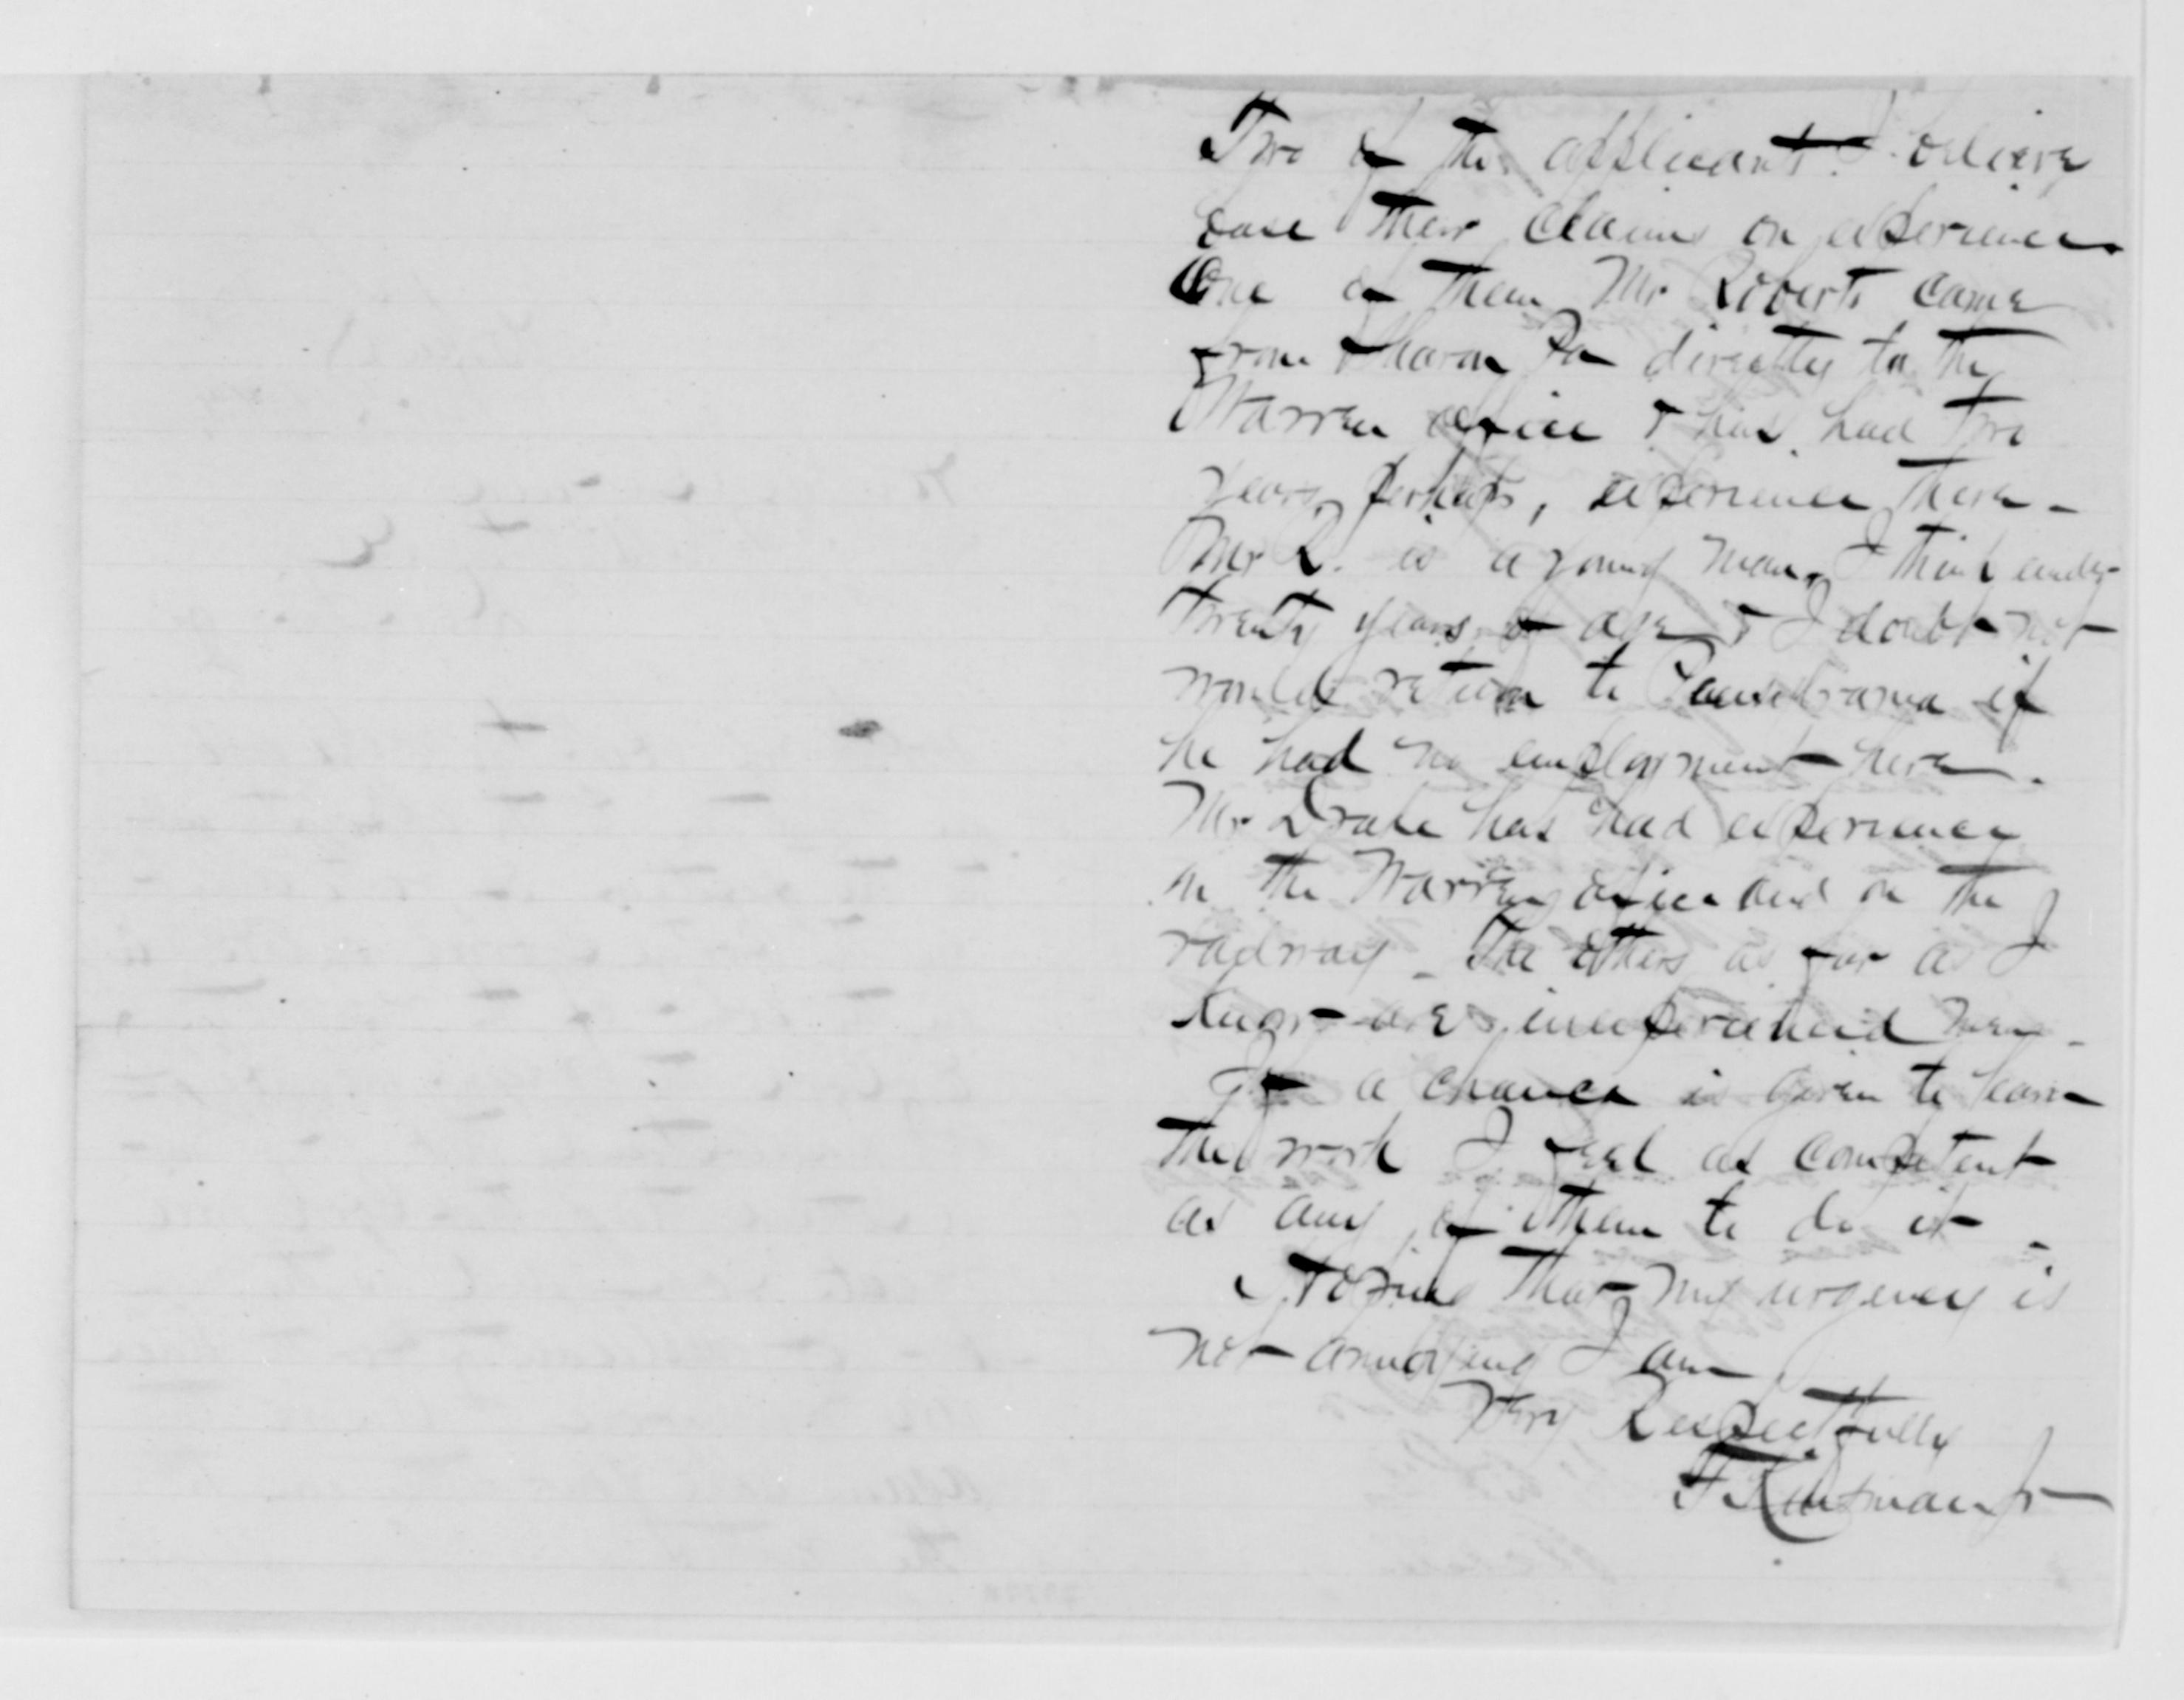 Two of the applicants I believe
base their claims on experience.
One of them Mr Roberts came
from Sharon Pa directly to the
Warren office & has had two
years, perhaps, experience there -
Mr R. is a young man, I think under
twenty years of age & I doubt not
would return to Pennsylvania if
he had no employment here.
Mr Drake has had experience
in the Warren office and on the
railway - The others as far as I
know are inexperienced men -
If a chance is given to learn
the work I feel as competent
as any of them to do it -
Hoping that my urgency is
not annoying I am
Very Respectfully